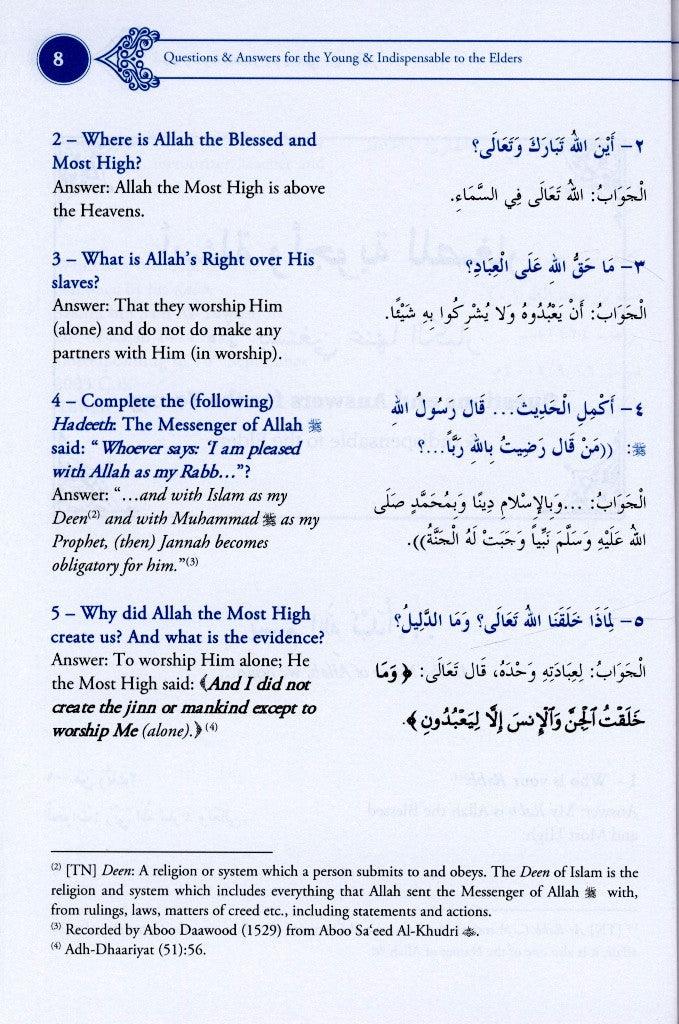 8
Questions & Answers for the Young & Indispensable to the Elders
2 – Where is Allah the Blessed and
Most High?
Answer: Allah the Most High is above
the Heavens.
٢– أَيْنَ اللهُ تَبَارَكَ وَتَعَالَى؟
الْجَوَابُ: اللهُ تَعَالَى فِي السَّمَاءِ.
3 – What is Allah’s Right over His
slaves?
Answer: That they worship Him
(alone) and do not do make any
partners with Him (in worship).
٣– مَا حَقُّ اللهِ عَلَى الْعِبَادِ؟
الْجَوَابُ: أَنْ يَعْبُدُوهُ وَلَا يُشْرِكُوا بِهِ شَيْئًا.
4 – Complete the (following)
Hadeeth: The Messenger of Allah ﷺ
said: “Whoever says: ‘I am pleased
with Allah as my Rabb…”?
Answer: “…and with Islam as my
Deen(2) and with Muhammad ﷺ as my
Prophet, (then) Jannah becomes
obligatory for him.”(3)
٤– أَكْمِلِ الْحَدِيثَ... قَال رَسُولُ اللهِ
ﷺ: ((مَنْ قَال رَضِيتُ بِاللهِ رَبًّا...؟
الْجَوَابُ: ...وَبِالإِسْلامِ دِينًا وَبِمُحَمَّدٍ صَلَى
اللهُ عَلَيْهِ وَسَلَّمَ نَبِيًّا وَجَبَتْ لَهُ الْجَنَّةُ)).
5 – Why did Allah the Most High
create us? And what is the evidence?
Answer: To worship Him alone; He
the Most High said: ﴾And I did not
create the jinn or mankind except to
worship Me (alone).﴿ (4)
٥– لِمَاذَا خَلَقَنَا اللهُ تَعَالَى؟ وَمَا الدَّلِيلُ؟
الْجَوَابُ: لِعِبَادَتِهِ وَحْدَهُ، قَال تَعَالَى: ﴿ وَمَا
خَلَقْتُ ٱلْجِنَّ وَٱلْإِنسَ إِلَّا لِيَعْبُدُونِ ﴾.
(2) [TN] Deen: A religion or system which a person submits to and obeys. The Deen of Islam is the
religion and system which includes everything that Allah sent the Messenger of Allah ﷺ with,
from rulings, laws, matters of creed etc., including statements and actions.
(3) Recorded by Aboo Daawood (1529) from Aboo Sa‘eed Al-Khudri.
(4) Adh-Dhaariyat (51):56.